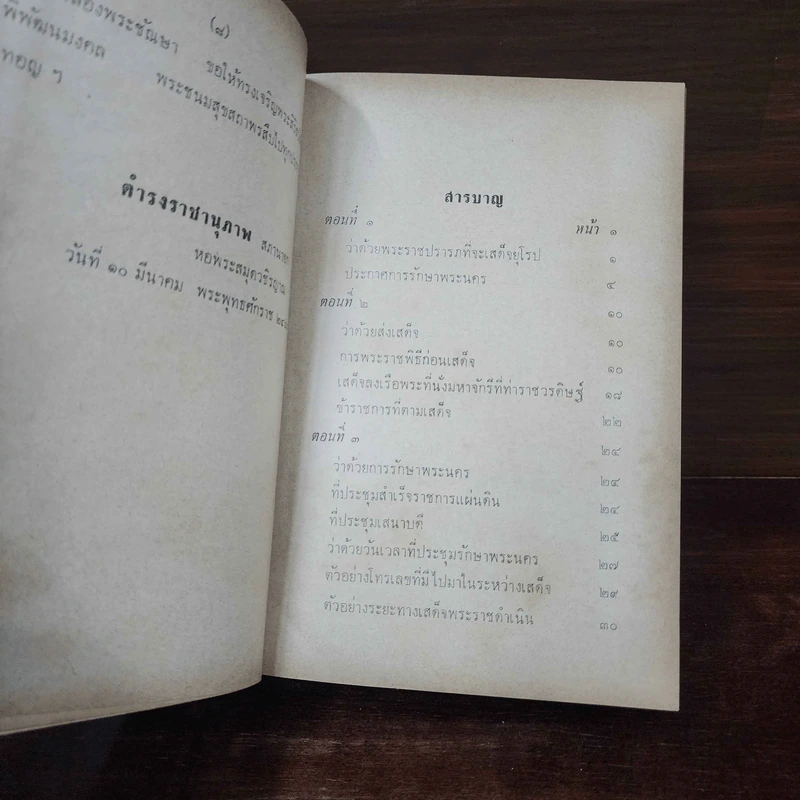 (๘)
พระชันษา ขอให้ทรงเจริญ
พิพัฒนมงคล พระชนมสุขสถาพรสืบไป
ทอญ ฯ
ดำรงราชานุภาพ
หอพระสมุดวชิรญาณ
วันที่ ๑๐ มีนาคม พระพุทธศักราช
สารบาญ
ตอนที่ ๑ หน้า ๑
ว่าด้วยพระราชปรารภที่จะเสด็จยุโรป ๑
ประกาศการรักษาพระนคร ๔
ตอนที่ ๒ ๑๐
ว่าด้วยส่งเสด็จ ๑๐
การพระราชพิธีก่อนเสด็จ ๑๐
เสด็จลงเรือพระที่นั่งมหาจักรีที่ท่าราชวรดิษฐ์ ๑๘
ข้าราชการที่ตามเสด็จ ๒๒
ตอนที่ ๓ ๒๔
ว่าด้วยการรักษาพระนคร ๒๔
ที่ประชุมสำเร็จราชการแผ่นดิน ๒๔
ที่ประชุมเสนาบดี ๒๕
ว่าด้วยวันเวลาที่ประชุมรักษาพระนคร ๒๗
ตัวอย่างโทรเลขที่มีไปมาในระหว่างเสด็จ ๒๙
ตัวอย่างระยะทางเสด็จพระราชดำเนิน ๓๐